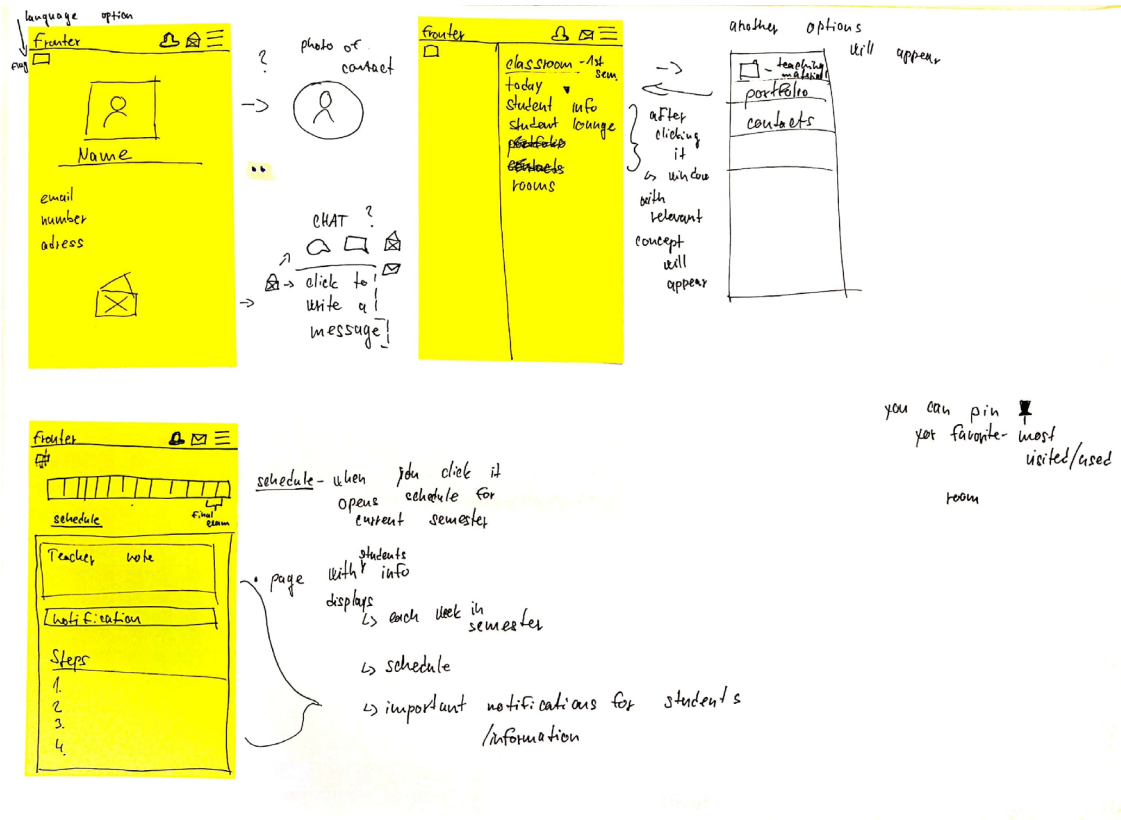 language option
flag
fronter
Name
email
number
adress
?
photo of
contact
CHAT ?
click to
write a
message
fronter
classroom - 1st
sem.
today
student info
student lounge
portfolio
contacts
rooms
after
clicking
it
↳ window
with
relevant
concept
will
appear
another options
will appear
- teaching
material
portfolio
contacts
you can pin
yor favorite - most
visited/used
room
fronter
final
exam
schedule
Teacher note
notification
Steps
1.
2
3.
4.
schedule - when you click it
opens schedule for
current semester
students
• page with info
displays
↳ each week in
semester
↳ schedule
↳ important notifications for students
/information